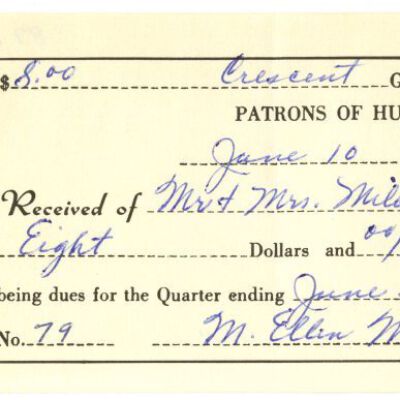 $ 8.00 Crescent G
PATRONS OF HU
June 10
Received of Mr & Mrs.
Eight Dollars and 00/
being dues for the Quarter ending June
No. 79 M. Ellen M